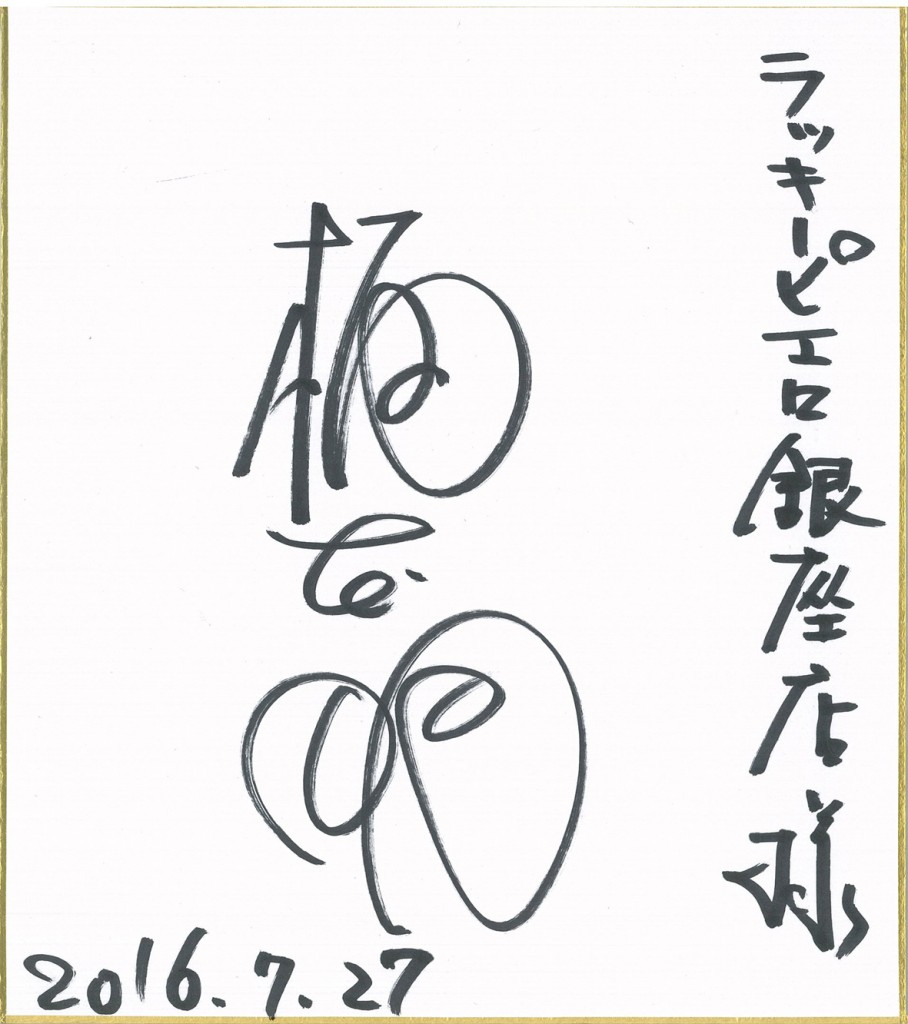 ラッキーピエロ銀座店様
2016.7.27